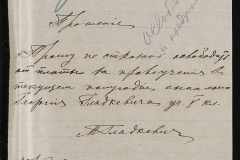 Прошеніе
Прошу по[корно] освободить
отъ платы за правоученіе въ
текущемъ полугодіи сына моего
Георгія Гладкевича уч. V кл.
А Гладкевич